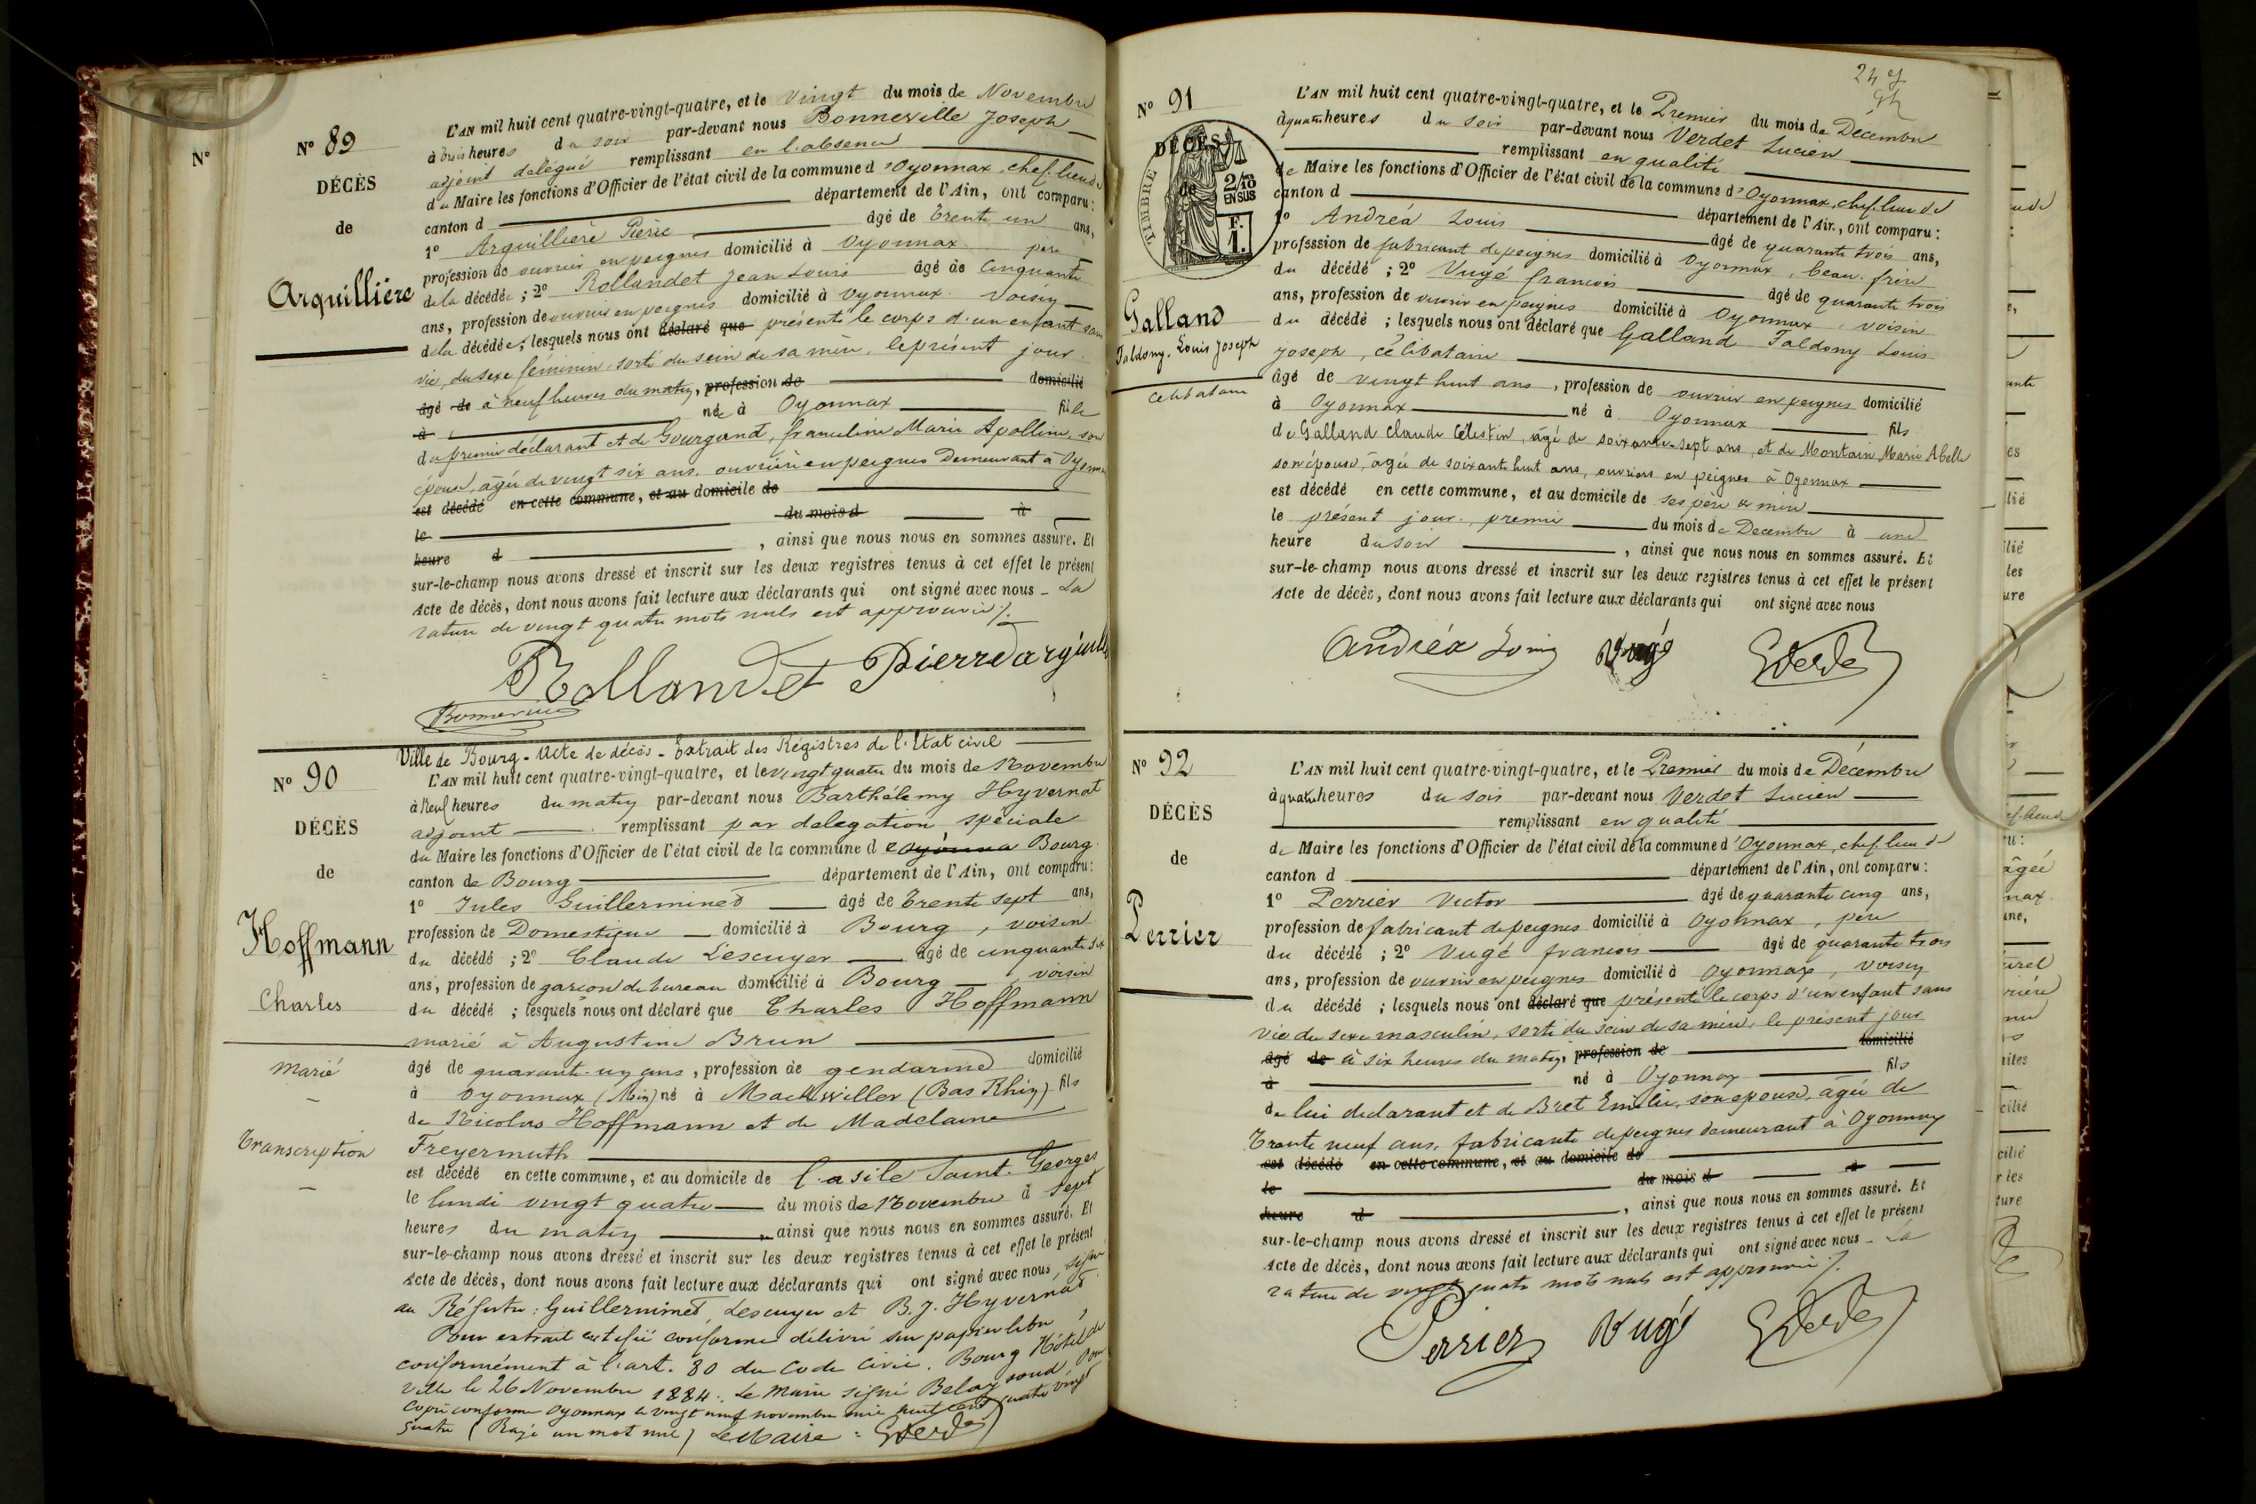 N°
N° 89
DÉCÈS
de
Arquillière
L'AN mil huit cent quatre-vingt-quatre, et le Vingt du mois de Novembre
à trois heures du soir par-devant nous Bonneville Joseph
adjoint délégué remplissant en l'absence
du Maire les fonctions d'Officier de l'état civil de la commune d'Oyonnax, chef-lieu de
canton d département de l'Ain, ont comparu:
1° Arquillière Pierre âgé de trente un ans,
profession de ouvrier en peignes domicilié à Oyonnax père
de la décédée; 2° Rollandet Jean Louis âgé de Cinquante
ans, profession de ouvrier en peignes domicilié à Oyonnax. Voisin
de la décédée; lesquels nous ont déclaré que présenté le corps d'un enfant sans
vie, du sexe féminin, sorti du sein de sa mère, le présent jour
âgé de à neuf heures du matin, profession de domicilié
à née à Oyonnax fille
du premier déclarant et de Gourgand, franceline Marie Apolline, son
épouse, âgée de vingt six ans, ouvrière en peignes demeurant à Oyonnax
est décédé en cette commune, et au domicile de
le du mois d à
heure d , ainsi que nous nous en sommes assuré. Et
sur-le-champ nous avons dressé et inscrit sur les deux registres tenus à cet effet le présent
Acte de décès, dont nous avons fait lecture aux déclarants qui ont signé avec nous - La
rature de vingt quatre mots nuls est approuvée /.
Rollandet Pierre arquilli
Bonneville
N° 90
DÉCÈS
de
Hoffmann
Charles
Marié
Transcription
Ville de Bourg - Acte de décès - Extrait des Régistres de l'Etat civil
L'AN mil huit cent quatre-vingt-quatre, et le vingt quatre du mois de Novembre
à Neuf heures du matin par-devant nous Barthélemy Hyvernat
adjoint remplissant par délégation spéciale
du Maire les fonctions d'Officier de l'état civil de la commune de Oyonna Bourg
canton de Bourg département de l'Ain, ont comparu:
1° Jules Guillerminet âgé de trente sept ans,
profession de Domestique domicilié à Bourg, voisin
du décédé; 2° Claude Lescuyer âgé de cinquante six
ans, profession de garçon de bureau domicilié à Bourg voisin
du décédé; lesquels nous ont déclaré que Charles Hoffmann
marié à Augustine Brun
âgé de quarante-un ans, profession de gendarme domicilié
à Oyonnax (Ain) né à Mackwiller (Bas Rhin) fils
de Nicolas Hoffmann et de Madelaine
Freyermuth
est décédé en cette commune, et au domicile de l'asile Saint-Georges
le lundi vingt quatre du mois de Novembre à sept
heures du matin , ainsi que nous nous en sommes assuré. Et
sur-le-champ nous avons dressé et inscrit sur les deux registres tenus à cet effet le présent
Acte de décès, dont nous avons fait lecture aux déclarants qui ont signé avec nous, signé
au Régistre: Guillerminet, Lescuyer et B. J. Hyvernat
Pour extrait certifié conforme délivré sur papier libre,
conformément à l'art. 80 du Code Civil. Bourg Hôtel de
Ville le 26 Novembre 1884. Le Maire signé Belaysoud Pour
copie conforme Oyonnax le vingt neuf novembre mil huit cent quatre vingt
quatre (Rayé un mot nul) Le Maire: Verdet
24 9
N° 91
DÉCÈS
de
TIMBRE
2/10
EN SUS
F.
1.
Galland
Taldony, Louis Joseph
célibataire
L'AN mil huit cent quatre-vingt-quatre, et le Premier du mois de Décembre
à quatre heures du soir par-devant nous Verdet Lucien
remplissant en qualité
de Maire les fonctions d'Officier de l'état civil de la commune d'Oyonnax, chef-lieu de
canton d département de l'Ain, ont comparu:
1° Andréa Louis âgé de quarante trois ans,
profession de fabricant de peignes domicilié à Oyonnax, beau-frère
du décédé; 2° Vugé françois âgé de quarante trois
ans, profession de ouvrier en peignes domicilié à Oyonnax, voisin
du décédé; lesquels nous ont déclaré que Galland Taldony Louis
Joseph, célibataire
âgé de vingt huit ans, profession de ouvrier en peignes domicilié
à Oyonnax né à Oyonnax fils
de Galland Claude Célestin, âgé de soixante-sept ans, et de Montain Marie Abelle
son épouse, âgée de soixante huit ans, ouvriers en peignes à Oyonnax
est décédé en cette commune, et au domicile de ses père et mère
le présent jour, premier du mois de Décembre à une
heure du soir , ainsi que nous nous en sommes assuré. Et
sur-le-champ nous avons dressé et inscrit sur les deux registres tenus à cet effet le présent
Acte de décès, dont nous avons fait lecture aux déclarants qui ont signé avec nous
Andréa Louis Vugé Verdet
N° 92
DÉCÈS
de
Perrier
L'AN mil huit cent quatre-vingt-quatre, et le Premier du mois de Décembre
à quatre heures du soir par-devant nous Verdet Lucien
remplissant en qualité
de Maire les fonctions d'Officier de l'état civil de la commune d'Oyonnax, chef-lieu de
canton d département de l'Ain, ont comparu:
1° Perrier Victor âgé de quarante cinq ans,
profession de fabricant de peignes domicilié à Oyonnax, père
du décédé; 2° Vugé françois âgé de quarante trois
ans, profession de ouvrier en peignes domicilié à Oyonnax, voisin
du décédé; lesquels nous ont déclaré que présenté le corps d'un enfant sans
vie du sexe masculin, sorti du sein de sa mère, le présent jour
âgé de à six heures du matin, profession de domicilié
à né à Oyonnax fils
de lui déclarant et de Bret Emilie, son épouse, âgée de
Trente neuf ans, fabricante de peignes demeurant à Oyonnax
est décédé en cette commune, et au domicile de
le du mois d à
heure d , ainsi que nous nous en sommes assuré. Et
sur-le-champ nous avons dressé et inscrit sur les deux registres tenus à cet effet le présent
Acte de décès, dont nous avons fait lecture aux déclarants qui ont signé avec nous - La
rature de vingt quatre mots nuls est approuvée /.
Perrier Vugé Verdet